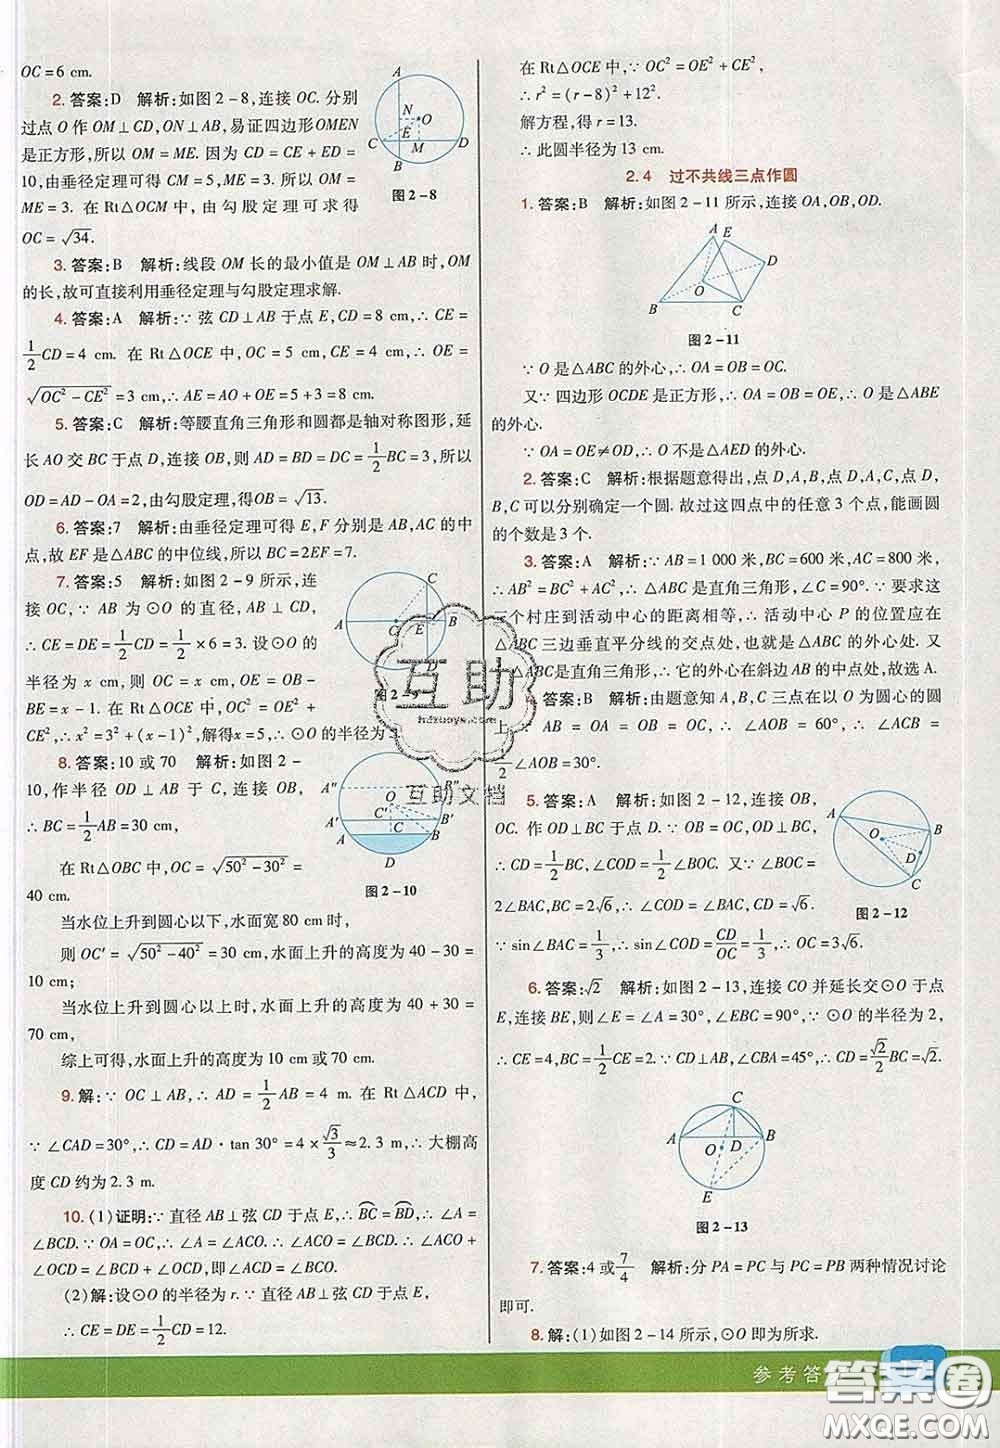 OC=6 cm.
2. 答案:D 解析:如图2-8,连接 OC. 分别
过点 O 作 OM⊥CD,ON⊥AB,易证四边形OMEN
是正方形,所以 OM=ME. 因为 CD=CE+ED=
10,由垂径定理可得 CM=5,ME=3. 所以 OM=
ME=3. 在 Rt△OCM 中,由勾股定理可求得
OC=√34.
A
N
O
E
C
M
D
B
图2-8
3. 答案:B 解析:线段 OM 长的最小值是 OM⊥AB 时,OM
的长,故可直接利用垂径定理与勾股定理求解.
4. 答案:A 解析:∵ 弦 CD⊥AB 于点 E,CD=8 cm,∴ CE=
1/2CD=4 cm. 在 Rt△OCE 中,OC=5 cm,CE=4 cm,∴ OE=
√(OC²-CE²)=3 cm,∴ AE=AO+OE=5+3=8 cm.
5. 答案:C 解析:等腰直角三角形和圆都是轴对称图形,延
长 AO 交 BC 于点 D,连接 OB,则 AD=BD=DC=1/2BC=3,所以
OD=AD-OA=2,由勾股定理,得OB=√13.
6. 答案:7 解析:由垂径定理可得 E,F 分别是 AB,AC 的中
点,故 EF 是△ABC 的中位线,所以 BC=2EF=7.
7. 答案:5 解析:如图2-9所示,连
接 OC,∵ AB 为⊙O 的直径,AB⊥CD,
∴ CE=DE=1/2CD=1/2×6=3. 设⊙O 的
半径为 x cm,则 OC=x cm,OE=OB-
BE=x-1. 在 Rt△OCE 中,OC²=OE²+
CE²,∴ x²=3²+(x-1)²,解得x=5,∴ ⊙O 的半径为
C
A
E
B
图2-9
8. 答案:10或70 解析:如图2-
10,作半径 OD⊥AB 于 C,连接 OB,
∴ BC=1/2AB=30 cm,
在 Rt△OBC 中,OC=√(50²-30²)=
40 cm.
A″
B″
O
A′
C′
B′
A
C
B
D
图2-10
当水位上升到圆心以下,水面宽80 cm 时,
则 OC′=√(50²-40²)=30 cm,水面上升的高度为40-30=
10 cm;
当水位上升到圆心以上时,水面上升的高度为40+30=
70 cm,
综上可得,水面上升的高度为10 cm 或70 cm.
9. 解:∵ OC⊥AB,∴ AD=1/2AB=4 m. 在 Rt△ACD 中,
∵ ∠CAD=30°,∴ CD=AD·tan 30°=4×√3/3≈2.3 m,∴ 大棚高
度 CD 约为2.3 m.
10. (1)证明:∵ 直径 AB⊥弦 CD 于点 E,∴ BC=BD,∴ ∠A=
∠BCD.∵ OA=OC,∴ ∠A=∠ACO. ∴ ∠ACO=∠BCD. ∴ ∠ACO+
∠OCD=∠BCD+∠OCD,即∠ACD=∠BCO.
(2)解:设⊙O 的半径为 r.∵ 直径 AB⊥弦 CD 于点 E,
∴ CE=DE=1/2CD=12.
在 Rt△OCE 中,∵ OC²=OE²+CE²,
∴ r²=(r-8)²+12².
解方程,得 r=13.
∴ 此圆半径为13 cm.
2.4 过不共线三点作圆
1. 答案:B 解析:如图2-11所示,连接 OA,OB,OD.
A
E
D
O
B
C
图2-11
∵ O 是△ABC 的外心,∴ OA=OB=OC.
又∵ 四边形 OCDE 是正方形,∴ OA=OB=OE,∴ O 是△ABE
的外心.
∵ OA=OE≠OD,∴ O 不是△AED 的外心.
2. 答案:C 解析:根据题意得出,点 D,A,B,点 D,A,C,点 D,
B,C 可以分别确定一个圆. 故过这四点中的任意3个点,能画圆
的个数是3个.
3. 答案:A 解析:∵ AB=1 000 米,BC=600 米,AC=800 米,
∴ AB²=BC²+AC²,∴ △ABC 是直角三角形,∠C=90°.∵ 要求这
三个村庄到活动中心的距离相等,∴ 活动中心 P 的位置应在
△ABC 三边垂直平分线的交点处,也就是△ABC 的外心处. 又
∵ △ABC 是直角三角形,∴ 它的外心在斜边 AB 的中点处,故选 A.
4. 答案:B 解析:由题意知 A,B,C 三点在以 O 为圆心的圆
上,∵ AB=OA=OB=OC,∴ ∠AOB=60°,∴ ∠ACB=
1/2∠AOB=30°.
5. 答案:A 解析:如图2-12,连接 OB,
OC. 作 OD⊥BC 于点 D.∵ OB=OC,OD⊥BC,
∴ CD=1/2BC,∠COD=1/2∠BOC. 又∵ ∠BOC=
2∠BAC,BC=2√6,∴ ∠COD=∠BAC,CD=√6.
∵ sin∠BAC=1/3,∴ sin∠COD=CD/OC=1/3,∴ OC=3√6.
A
O
B
D
C
图2-12
6. 答案:√2 解析:如图2-13,连接 CO 并延长交⊙O 于点
E,连接 BE,则∠E=∠A=30°,∠EBC=90°,∵ ⊙O 的半径为2,
∴ CE=4,BC=1/2CE=2.∵ CD⊥AB,∠CBA=45°,∴ CD=√2/2BC=√2.
C
A
D
B
O
E
图2-13
7. 答案:4或7/4 解析:分 PA=PC 与 PC=PB 两种情况讨论
即可.
8. 解:(1)如图2-14所示,⊙O 即为所求.
互助
hdzuoye.com
互助文档
参考答
答案卷
MXQE.COM